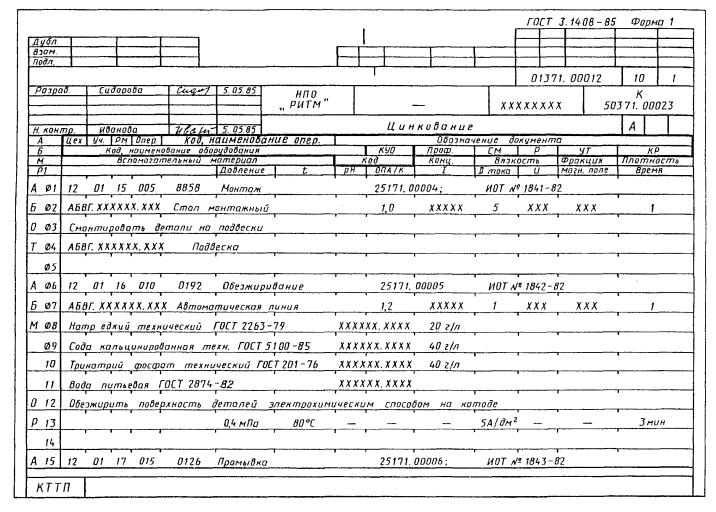 ГОСТ 3.1408-85 Форма 1
Дубл.
Взам.
Подл.
01371.00012 10 1
Разраб. Сидорова 5.05.85 НПО „РИТМ" — XXXXXXXX К 50371.00023
Н. контр. Иванова 5.05.85 Цинкование А
А Цех Уч. РМ Опер. Код, наименование опер. Обозначение документа
Б Код, наименование оборудования КУО Проф. СМ Р УТ КР
М Вспомогательный материал Код Конц. Вязкость Фракция Плотность
Р1 Давление t pH ОПА/К I D тока U магн. поле Время
А Ø1 12 01 15 005 8858 Монтаж 25171.00004; ИОТ № 1841-82
Б Ø2 АБВГ.XXXXXX.XXX Стол монтажный 1,0 XXXXX 5 XXX XXX 1
О Ø3 Смонтировать детали на подвески
Т Ø4 АБВГ.XXXXXX.XXX Подвеска
Ø5
А Ø6 12 01 16 010 0192 Обезжиривание 25171.00005 ИОТ № 1842-82
Б Ø7 АБВГ.XXXXXX.XXX Автоматическая линия 1,2 XXXXX 1 XXX XXX 1
М Ø8 Натр едкий технический ГОСТ 2263-79 XXXXXX.XXXX 20 г/л
Ø9 Сода кальцинированная техн. ГОСТ 5100-85 XXXXXX.XXXX 40 г/л
10 Тринатрий фосфат технический ГОСТ 201-76 XXXXXX.XXXX 40 г/л
11 Вода питьевая ГОСТ 2874-82 XXXXXX.XXXX
О 12 Обезжирить поверхность деталей электрохимическим способом на катоде
Р 13 0,4 мПа 80°С — — — 5А/дм² — — 3 мин
14
А 15 12 01 17 015 0126 Промывка 25171.00006; ИОТ № 1843-82
КТТП